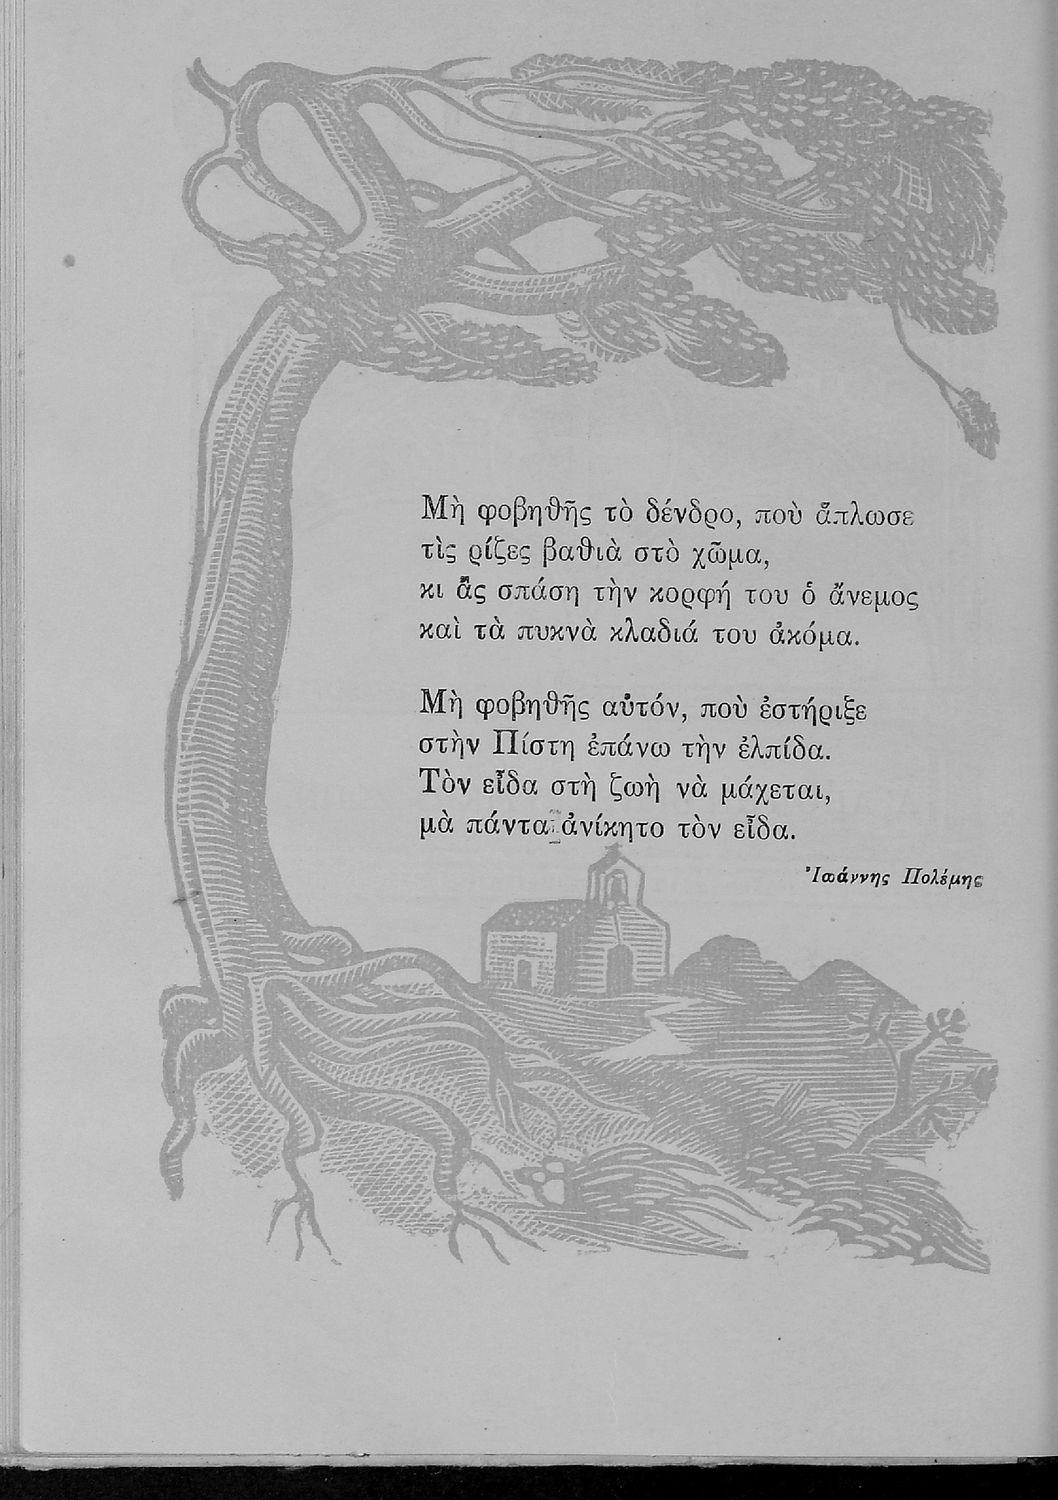 Μὴ φοβηθῆς τὸ δένδρο, ποὺ ἅπλωσε
τὶς ρίζες βαθιὰ στὸ χῶμα,
κι ἂς σπάση τὴν κορφή του ὁ ἄνεμος
καὶ τὰ πυκνὰ κλαδιά του ἀκόμα.
Μὴ φοβηθῆς αὐτόν, ποὺ ἐστήριξε
στὴν Πίστη ἐπάνω τὴν ἐλπίδα.
Τὸν εἶδα στὴ ζωὴ νὰ μάχεται,
μὰ πάντα ἀνίκητο τὸν εἶδα.
Ἰωάννης Πολέμης